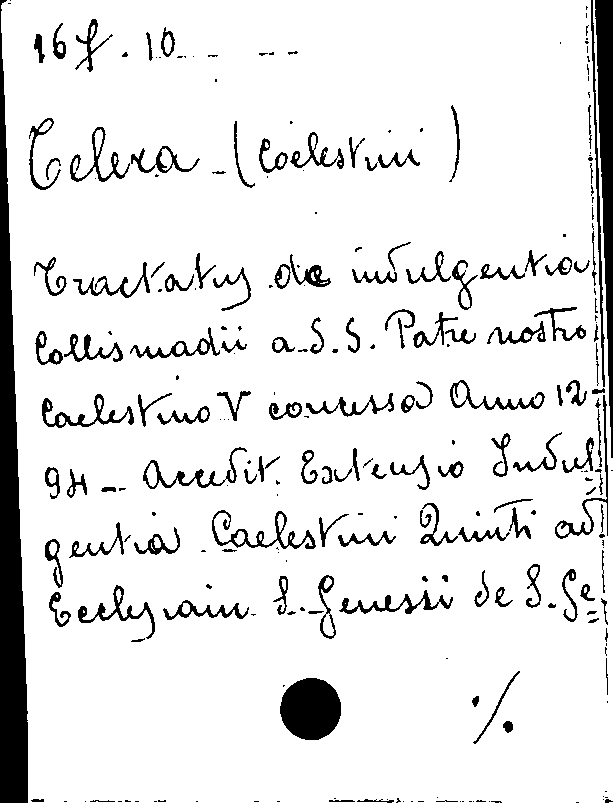 16 f. 10
Telera - (Coelestini)
Tractatus de indulgentia
Collismadii a S.S. Patre nostro
Caelestino V concessa Anno 12-
94 - Accedit. Extensio Indul
gentia Caelestini Quinti ad
Ecclesiam S. Genessi de S. Ge=
./.